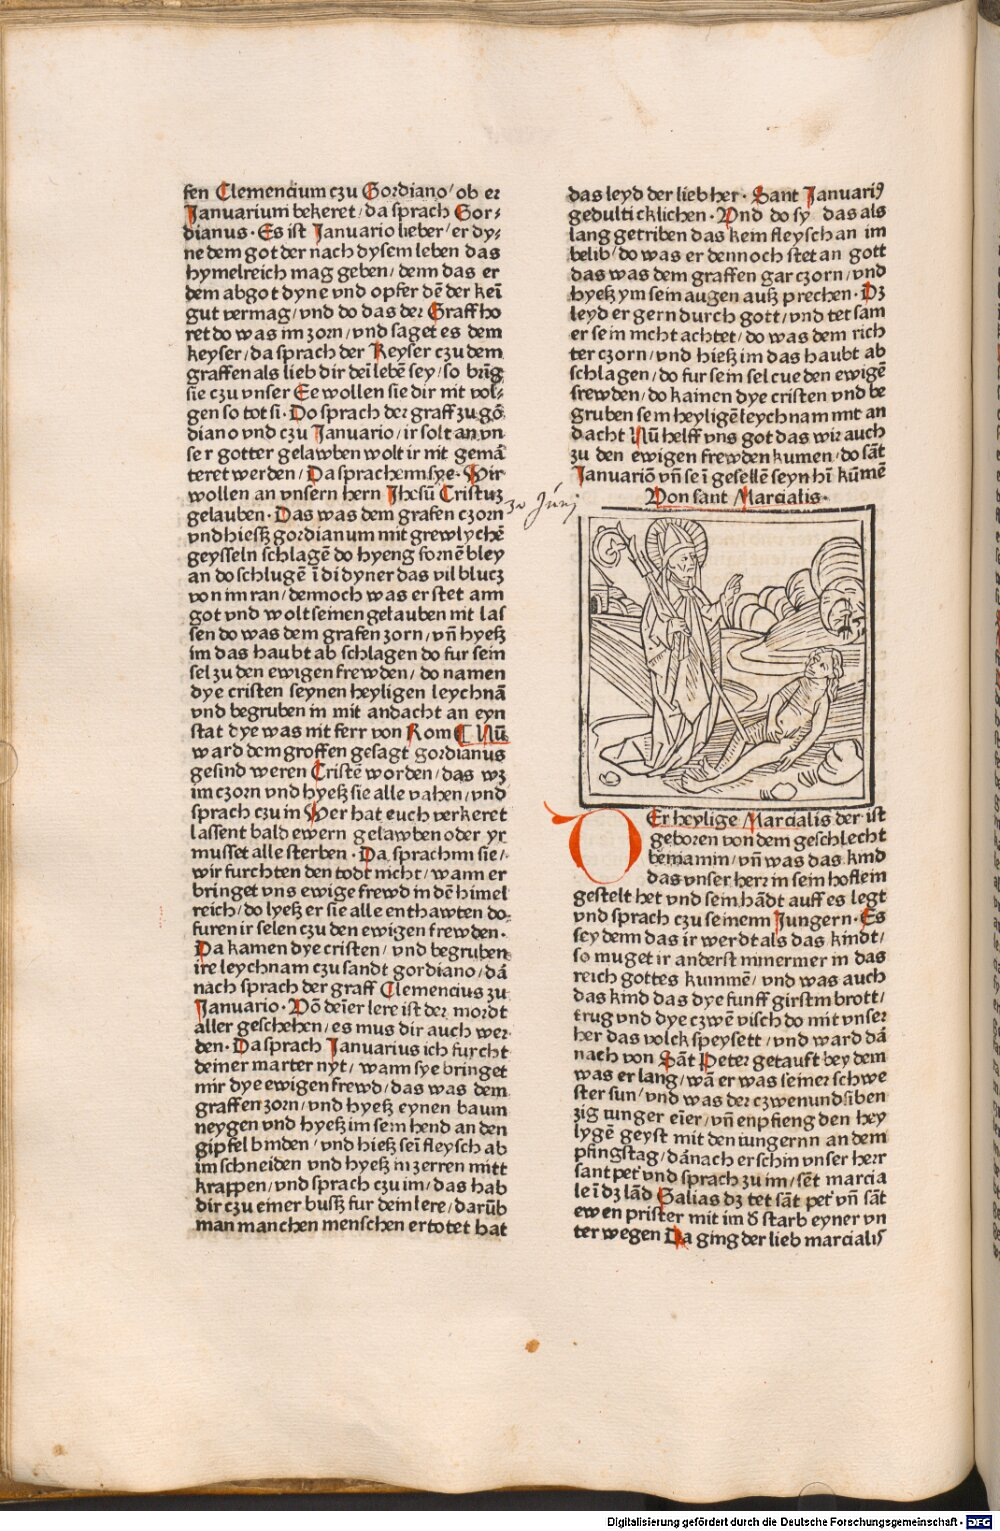 fen Clemencium czu Gordiano/ ob er
Januarium bekeret/ da sprach Gor⸗
dianus· Es ist Januario lieber/ er dy⸗
ne dem got der nach dysem leben das
hymelreich mag geben/ denn das er
dem abgot dyne vnd opfer dē der keī
gut vermag/ vnd do das der Graff ho
ret do was im zorn/ vnd saget es dem
keyser/ da sprach der Keyser czu dem
graffen als lieb dir deī lebē sey/ so brīg
sie czu vnser Ee wollen sie dir nit vol⸗
gen so tot si· Do sprach der graff zu gō
diano vnd czu Januario/ ir solt an vn
se r gotter gelawben wolt ir nit gemā
teret werden/ Da sprachenn sye· Wir
wollen an vnsern hern Jhesū Cristuz
gelauben· Das was dem grafen czorn
vnd hiesz gordianum mit grewlychē
geysseln schlagē do hyeng fornē bley
an do schlugē ī di dyner das vil blucz
von im ran/ dennoch was er stet ann
got vnd wolt seinen gelauben nit las
sen do was dem grafen zorn/ vn̄ hyesz
im das haubt ab schlagen do fur sein
sel zu den ewigen frewden/ do namen
dye cristen seynen heyligen leychnā
vnd begruben in mit andacht an eyn
stat dye was nit ferr von Rom ¶ Nū
ward dem groffen gesagt gordianus
gesind weren Cristē worden/ das wz
im czorn vnd hyesz sie alle vahen/ vnd
sprach czu in Wer hat euch verkeret
lassent bald ewern gelawben oder yr
musset alle sterben· Da sprachnn sie/
wir furchten den todt nicht/ wann er
bringet vns ewige frewd in dē himel
reich/ do lyesz er sie alle enthawten do
furen ir selen czu den ewigen frewden·
Da kamen dye cristen/ vnd begruben
ire leychnam czu sandt gordiano/ dā
nach sprach der graff Clemencius zu
Januario· Vō deīer lere ist der mordt
aller geschehen/ es mus dir auch wer
den· Da sprach Januarius ich furcht
deiner marter nyt/ wann sye bringet
mir dye ewigen frewd/ das was dem
graffen zorn/ vnd hyesz eynen baum
neygen vnd hyesz im sein hend an den
gipfel binden/ vnd hiesz seī fleysch ab
im schneiden vnd hyesz in zerren mitt
krappen/ vnd sprach czu im/ das hab
dir czu einer busz fur dein lere/ darūb
man manchen menschen ertotet hat
das leyd der lieb her· Sant Januariꝰ
gedulti cklichen· Vnd do sy das als
lang getriben das kein fleysch an im
belib/ do was er dennoch stet an gott
das was dem graffen gar czorn/ vnd
hyesz ym sein augen ausz prechen· Dz
leyd er gern durch gott/ vnd tet sam
er se in nicht achtet/ do was dem rich
ter czorn/ vnd hiesz im das haubt ab
schlagen/ do fur sein sel cue den ewigē
frewden/ do kamen dye cristen vnd be
gruben sein heyligē leychnam mit an
dacht Nū helff vns got das wir auch
zu den ewigen frewden kumen/ do sāt
Januariō vn̄ se ī gesellē seyn hī kūmē
Von sant Marcialis·
30 Junj
DEr heylige Marcialis der ist
geboren von dem geschlecht
beniamin/ vn̄ was das kind
das vnser herr in sein hoflein
gestelt het vnd sein hādt auff es legt
vnd sprach czu seinenn Jungern· Es
sey denn das ir werdt als das kindt/
so muget ir anderst nimermer in das
reich gottes kummē/ vnd was auch
das kind das dye funff girstin brott/
trug vnd dye czwē visch do mit vnser
her das volck speysett/ vnd ward dā
nach von Sāt Peter getauft bey dem
was er lang/ wā er was seiner schwe
ster sun/ vnd was der czwenundsiben
zig iunger eīer/ vn̄ enpfieng den hey
lygē geyst mit den iungernn an dem
pfingstag/ dānach erschin vnser herr
sant pet' vnd sprach zu im/ sēt marcia
le ī dz lād Galias dz tet sāt pet' vn̄ sāt
ewen prister mit im ð starb eyner vn
ter wegen Da ging der lieb marcialis
Digitalisierung gefördert durch die Deutsche Forschungsgemeinschaft - DFG